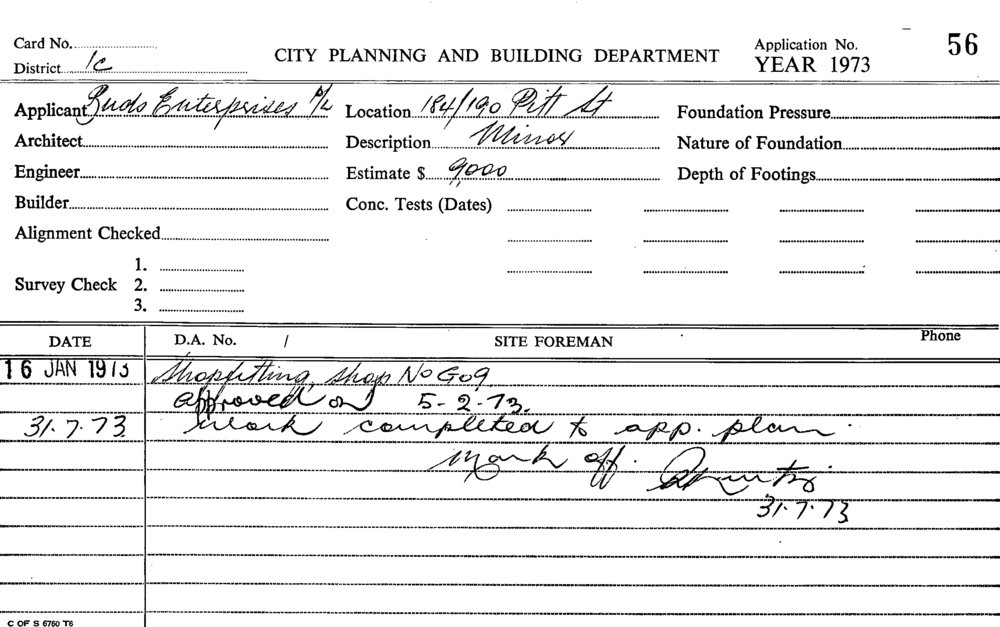 Card No.
District 1c
CITY PLANNING AND BUILDING DEPARTMENT
Application No. 56
YEAR 1973
Applicant Buds Enterprises P/L
Location 184/190 Pitt St
Foundation Pressure
Architect
Description Minor
Nature of Foundation
Engineer
Estimate $ 9,000
Depth of Footings
Builder
Conc. Tests (Dates)
Alignment Checked
Survey Check 1.
2.
3.
DATE D.A. No. / SITE FOREMAN Phone
16 JAN 1973 Shopfitting, shop No G09
approved on 5-2-73.
31.7.73 Work completed to app. plan.
Mark off.
31.7.73
C OF S 6760 T6